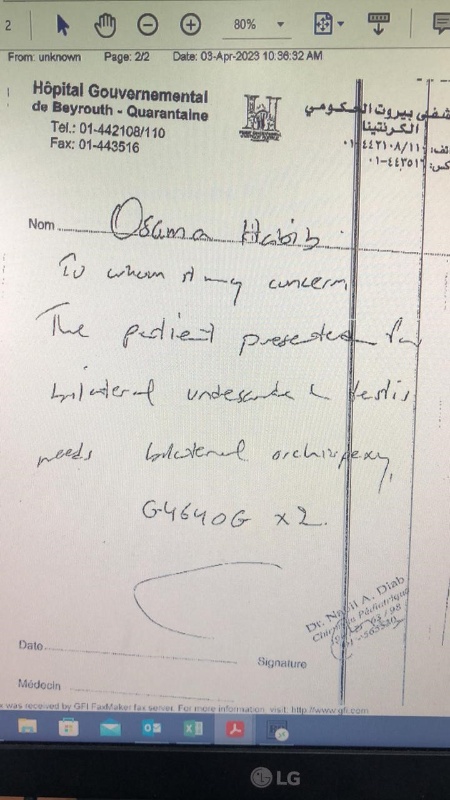 2
80%
From: unknown Page: 2/2 Date: 03-Apr-2023 10:36:32 AM
Hôpital Gouvernemental
de Beyrouth - Quarantaine
Tel.: 01-442108/110
Fax: 01-443516
بيروت الحكومي
الكرنتينا
٠١-٤٤٢١٠٨/١١
٠١-٤٤٣٥١
Nom Osama Habib
To whom it may concern
The patient presented for
bilateral undescended testis
needs bilateral orchiopexy,
G4640G x2.
Dr. Nabil A. Diab
Chirurgie Pédiatrique
Date
Signature
Médecin
was received by GFI FaxMaker fax server. For more information, visit: http://www.gfi.com
LG